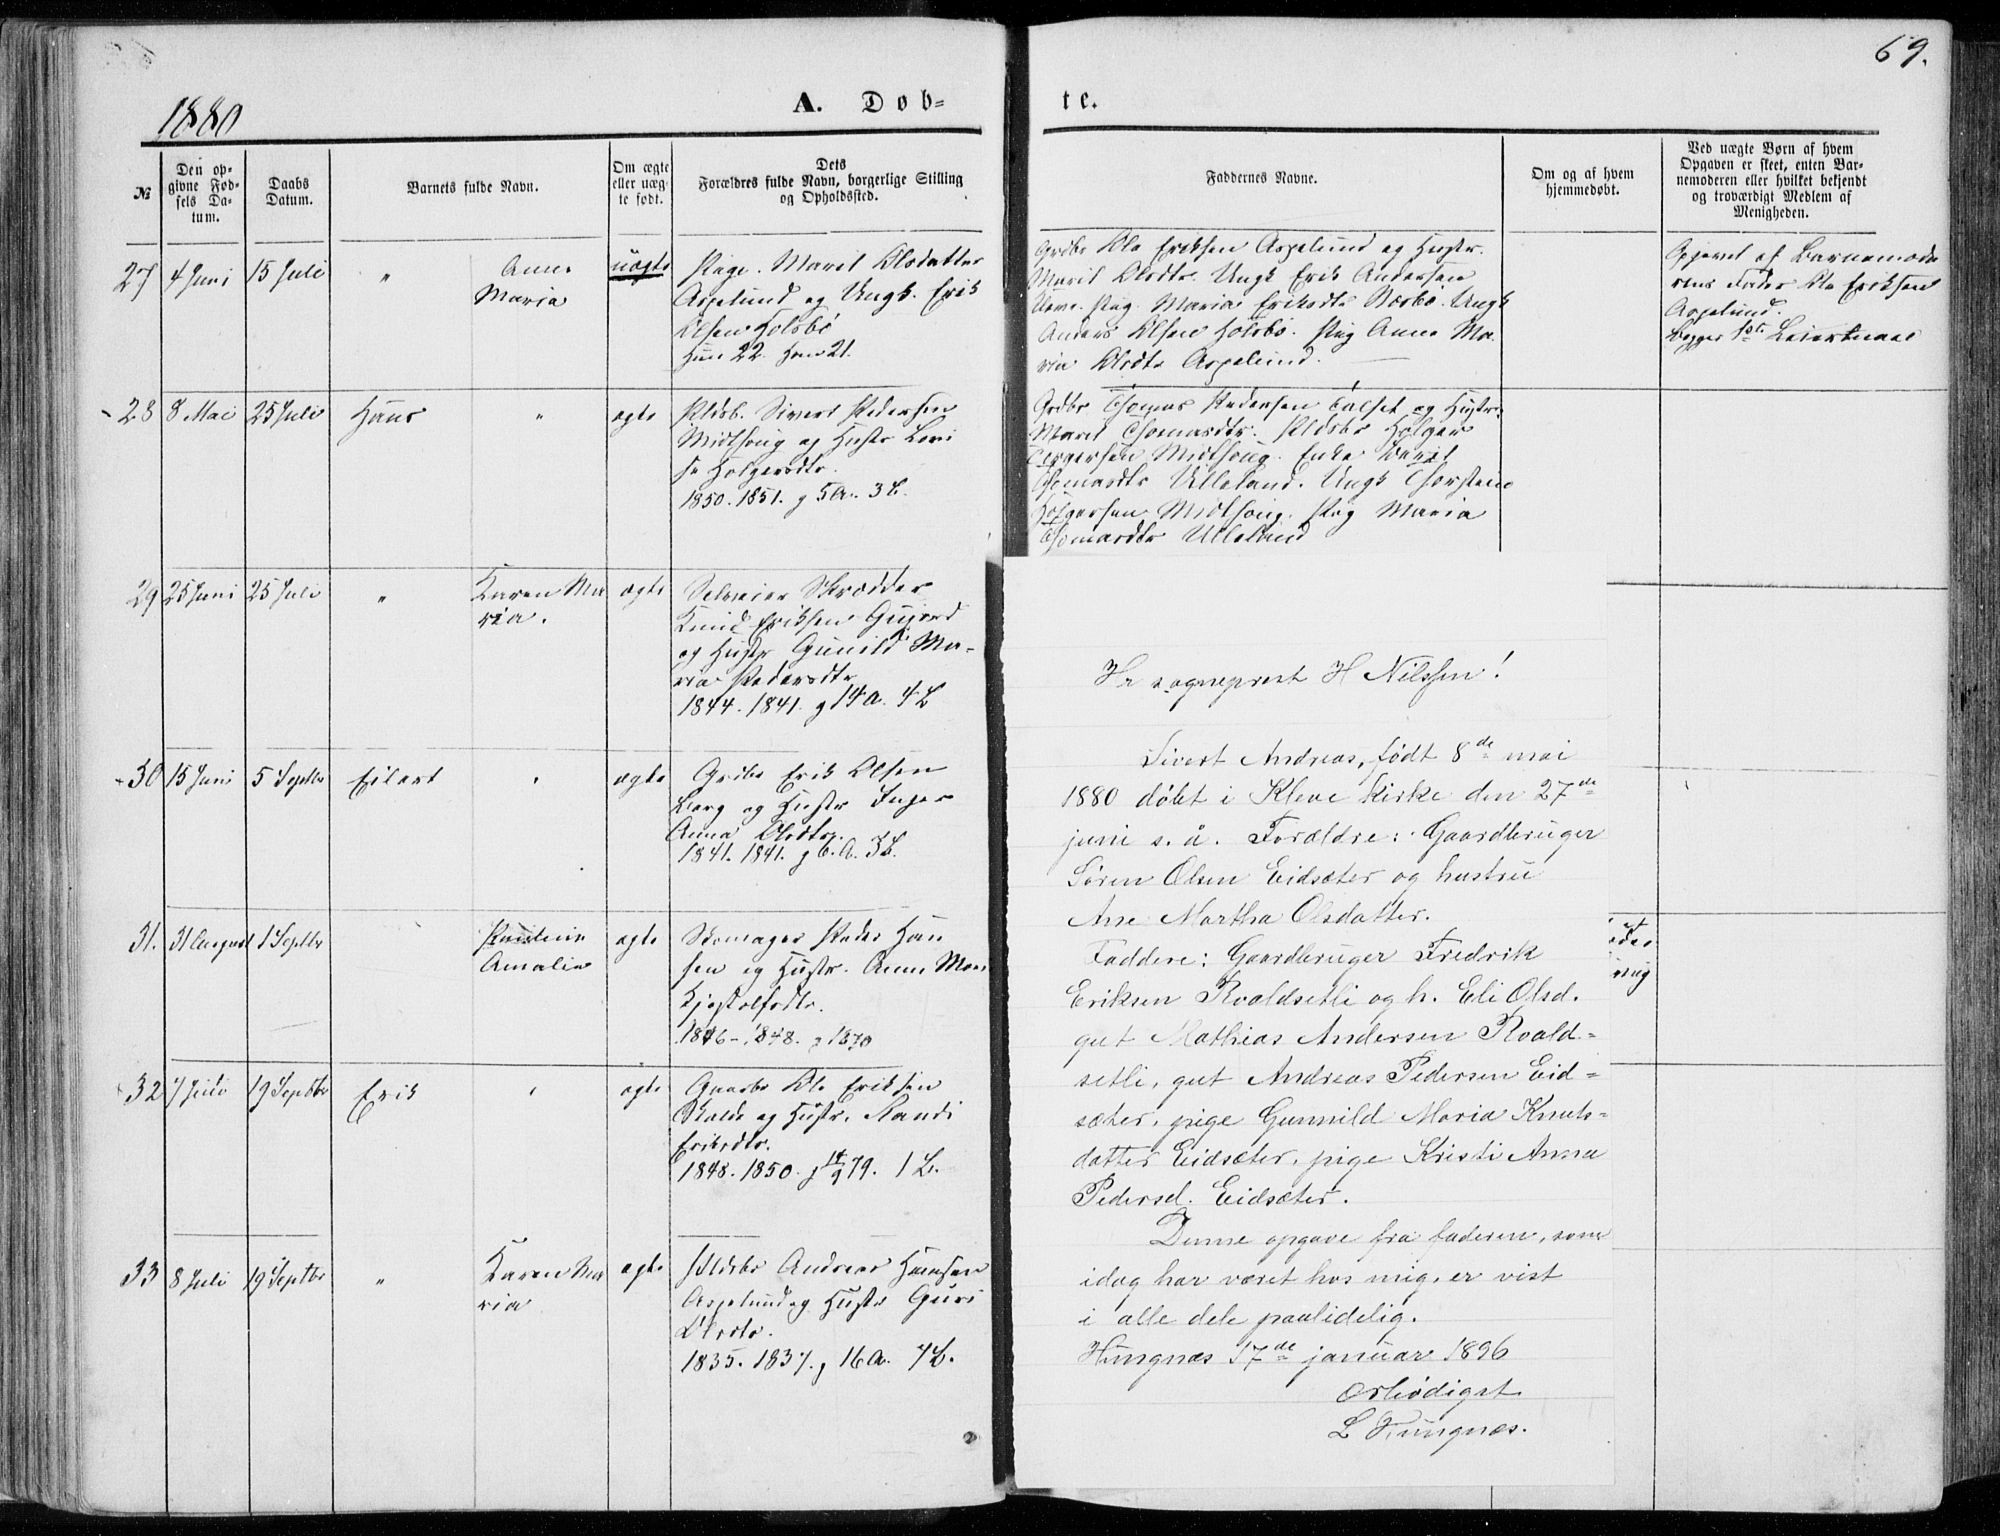 69.
1880
A. Døb=
te.
№
Den op-
givne Fød-
sels Da-
tum.
Daabs
Datum.
Barnets fulde Navn.
Om ægte
eller uæg-
te født.
Dets
Forældres fulde Navn, borgerlige Stilling
og Opholdssted.
Faddernes Navne.
Om og af hvem
hjemmedøbt.
Ved uægte Børn af hvem
Opgaven er skeet, enten Bar-
nemoderen eller hvilket bekjendt
og troværdigt Medlem af
Menigheden.
27 4 Juni 15 Juli " Anne
Maria
uægte
Pige. Marit Olsdatter
Aspelund og Ungk. Erik
Olsen Holsbø
Hun 22 Han 21.
Grdbr Ole Eriksen Aspelund og Hustr.
Marit Olsdtr. Ungk Erik Andersen
Pig. Maria Eriksdtr. Ungk
Anders Olsen Holsbø. Pig Anne Ma-
ria Olsdtr Aspelund.
Opgivet af Barnemode
rens Fader Ole Eriksen
Aspelund.
Begges 1ste Leiermaal
28 8 Mai 25 Juli Hans " ægte
Pldsb. Sivert Pedersen
Midthoug og Hustr Lovi
se Holgersdtr.
1850. 1851. g 5 A. 3 L.
Grdbr Thomas Pedersen Talset og Hustr.
Marit Thomasdtr. Pldsbr Holger
Midthoug. Enke
Thomasdtr Ulleland. Ungk Thorstein
Holgersen Midthoug. Pig Maria
Thomasdtr Ulleland
29 25 Juni 25 Juli " Karen Ma
ria.
ægte
Selveier Skrædder
Knud Eriksen
og Hustr Gunild Ma-
ria Pedersdtr
1844. 1841. g 14 A. 4 L
30 15 Juni 5 Septbr Eilert " ægte
Grdbr Erik Olsen
Berg og Hustr Inger
Anna Olsdtr.
1841. 1841. g 6. A. 3 L.
31. 31 August 1 Septbr Pauline
Amalia
ægte
Skomager Peder Han
sen og Hustr. Anne Mari
1846 - 1848. g 1870
32 7 Juli 19 Septbr Erik " ægte
Gaardbr Ole Eriksen
og Hustr. Randi
Eriksdtr.
1848. 1850. g 79. 1 L.
33 8 Juli 19 Septbr " Karen Ma
ria
ægte
Pldsbr Andreas Hansen
Aspelund og Hustr Guri
Olsdtr.
1835. 1837. g 16 A. 7 L.
Hr sogneprest H Nilssen!
Sivert Andreas, født 8de mai
1880 døbt i Kleve kirke den 27de
juni s. å. Forældre: Gaardbruger
Søren Olsen Eidsæter og hustru
Ane Martha Olsdatter.
Faddere: Gaardbruger Fredrik
Eriksen Roaldsetli og h. Eli Olsd.
gut Mathias Andersen Roald-
setli, gut Andreas Pedersen Eid-
sæter, pige Gunnild Maria Knuts-
datter Eidsæter, pige Kristi Anna
Pedersd. Eidsæter.
Denne opgave fra faderen, som
idag har været hos mig, er vist
i alle dele paalidelig.
Hungnæs 17de januar 1896
Ærbødigst
L Hungnæs.